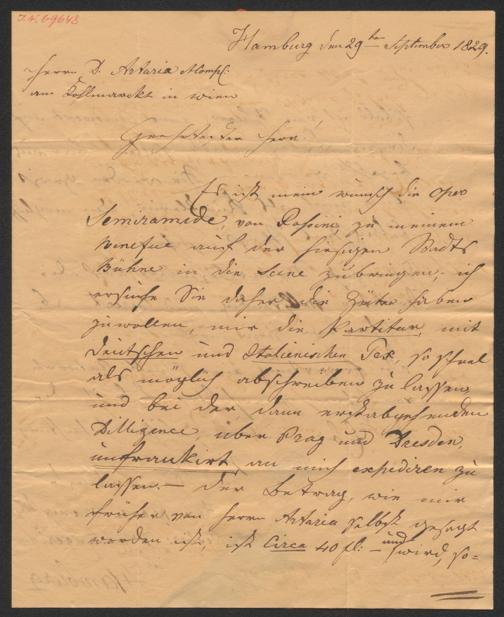 I.N. 69643
Hamburg den 29ten September 1829.
Herrn D. Artaria
am Kohlmarckt in Wien
Geehrtester Herr!
Es ist mein wunsch die Oper
Semiramide, von Rossini zu meinem
Benefice auf der hiesigen Stadts
Bühne in die Scene zubringen; ich
ersuche Sie daher die Güte haben
zuwollen, mir die Partitur, mit
Deutschen und Italienischen Tex, so schnel
als möglich abschreiben zu lassen,
und bei der dann erstabgehenden
Dilligence, über Prag und Dresden,
unfrankirt an mich expediren zu
lassen. — Der Betrag, wie mir
früher von Herrn Artaria selbst gesagt
worden ist, ist Circa 40 fl: — und wird, so=